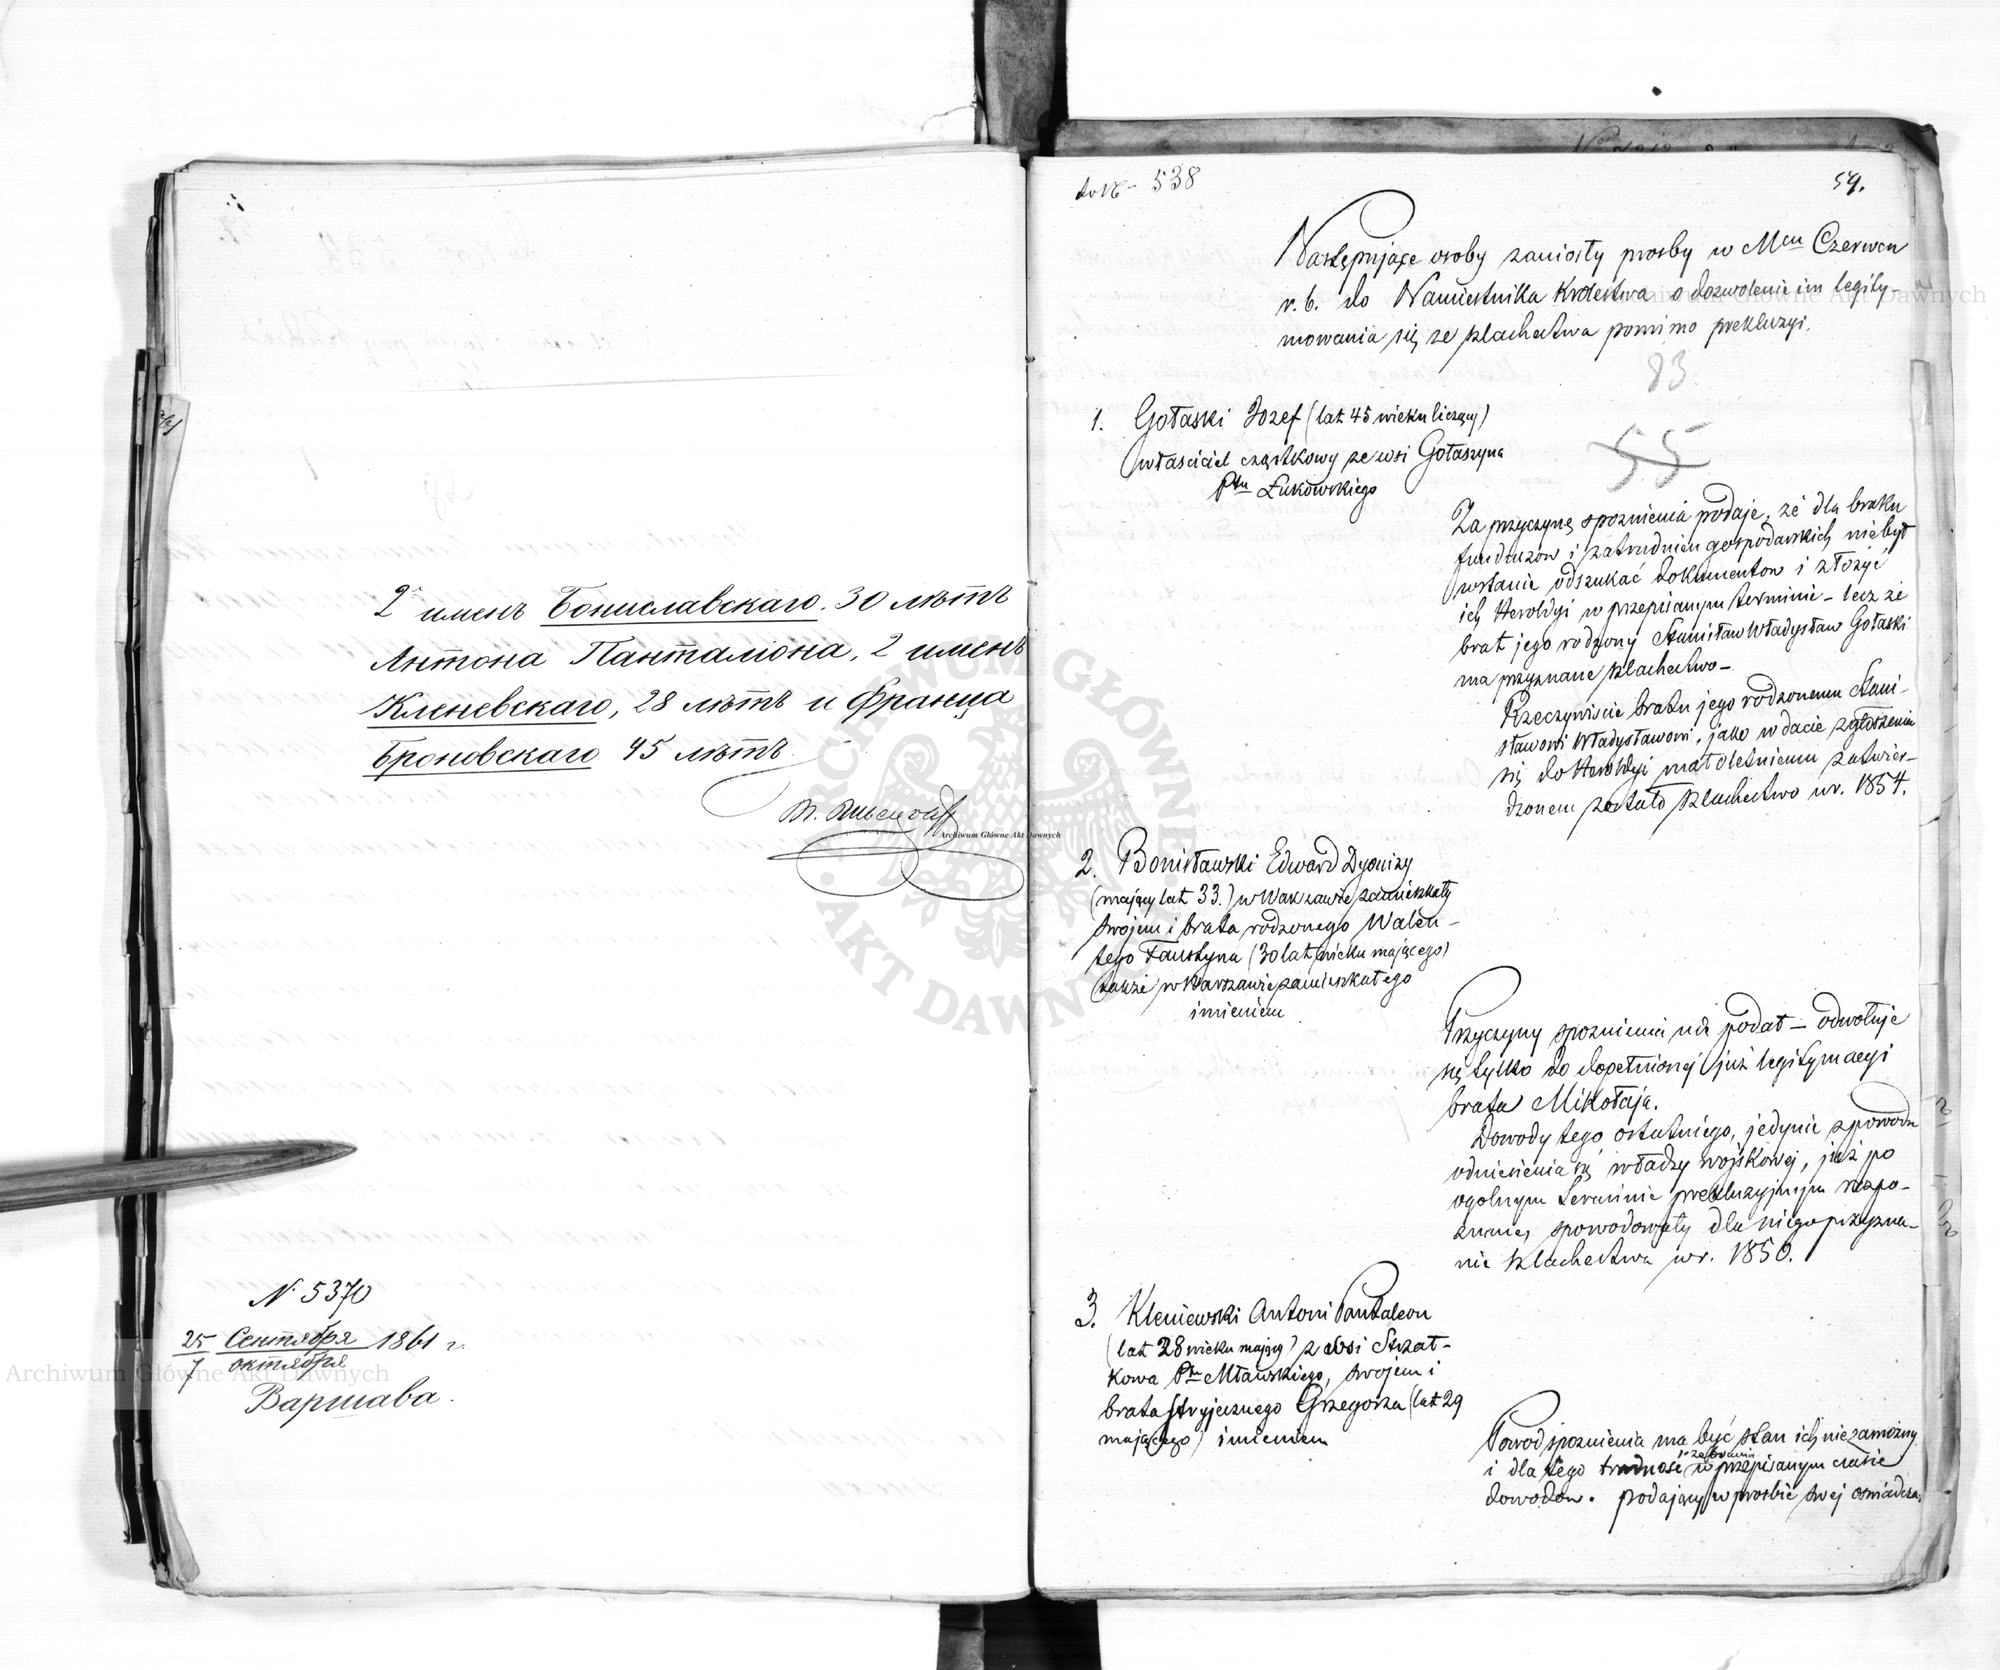 2х именъ Бониславскаго. 30 лѣтъ
Антона Панталіона, 2 именъ
Кленевскаго, 28 лѣтъ и Франца
Броновскаго 45 лѣтъ.
N. 5370
25 Сентября 1861 г.
7 октября
Варшава.
538
54.
Następujące osoby zaniosły prosby w Mcu Czerwcu
r. b. do Namiestnika Królestwa o dozwolenie im legity-
mowania się ze szlachectwa pomimo prekluzyi.
83
55
1. Gołaski Jozef (lat 45 wieku liczący)
własciciel cząstkowy ze wsi Gołaszyna
Ptu Łukowskiego
Za przyczynę spoznienia podaje, że dla braku
funduszow i zatrudnien gospodarskich nie był
wstanie odszukać dokumentow i złożyć
ich Heroldyi w przepisanym terminie – lecz że
brat jego rodzony Stanisław Władysław Gołaski
ma przyznane szlachectwo –
Rzeczywiscie bratu jego rodzonemu Stani-
sławowi Władysławowi, jako w dacie zgłoszenia
się do Heroldyi małoletniemu zatwier-
dzonem zostało szlachectwo w r. 1854.
2. Bonisławski Edward Dyonizy
(mający lat 33.) w Warszawie zamieszkały
swojem i brata rodzonego Walen-
tego Faustyna (30 lat wieku mającego)
także w Warszawie zamieszkałego
imieniem
Przyczyny spoznienia nie podał – odwołuje
się tylko do dopełnionej już legitymacyi
brata Mikołaja.
Dowody tego ostatniego, jedynie z powodu
odniesienia się władzy wojskowej, już po
ogolnym terminie prekluzyjnym rozpo-
znane, spowodowały dla niego przyzna-
nie szlachectwa w r. 1850.
3. Kleniewski Antoni Pantaleon
(lat 28 wieku mający) z wsi Strzał-
kowa Ptu Mławskiego, swojem i
brata stryjecznego Grzegorza (lat 29
mającego) imieniem
Powod spoznienia ma być stan ich niezamożny
i dla tego trudnosc zebrania w przepisanym czasie
dowodow. podający w prosbie swej oswiadcza,